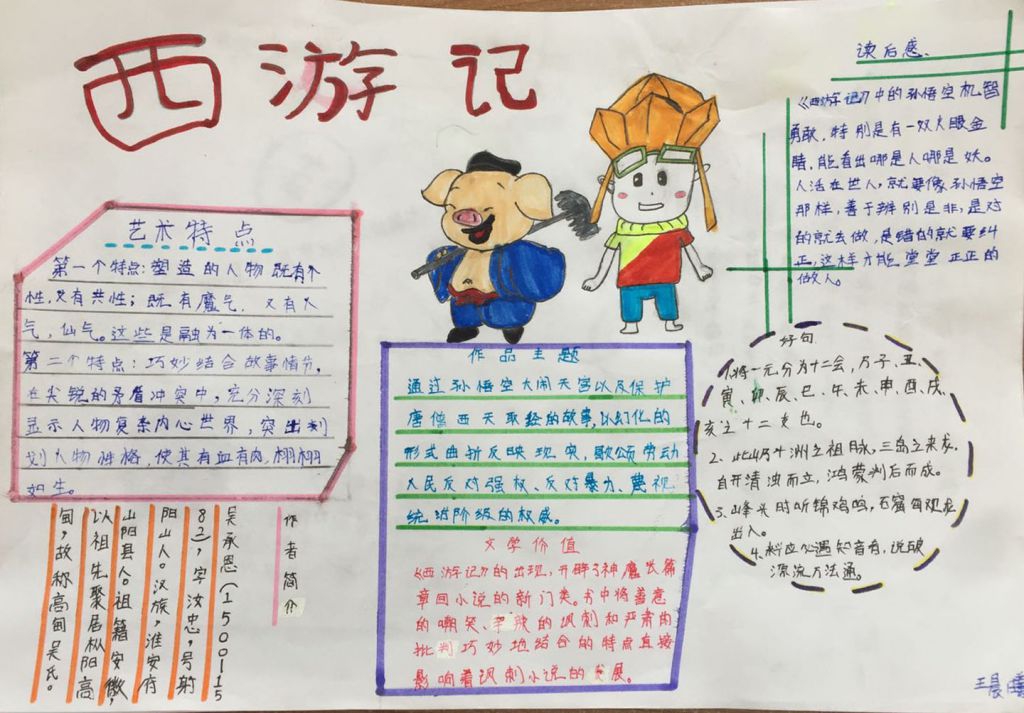 西游记
读后感
《西游记》中的孙悟空机智
勇敢，特别是有一双火眼金
睛，能看出哪是人哪是妖。
人活在世人，就要像孙悟空
那样，善于辨别是非，是对
的就去做，是错的就要纠
正，这样才能堂堂正正的
做人。
艺术特点
第一个特点：塑造的人物既有个
性，又有共性；既有魔气，又有人
气，仙气。这些是融为一体的。
第二个特点：巧妙结合故事情节，
在尖锐的矛盾冲突中，充分深刻
显示人物复杂内心世界，突出刻
划人物性格，使其有血有肉，栩栩
如生。
作品主题
通过孙悟空大闹天宫以及保护
唐僧西天取经的故事，以幻化的
形式曲折反映现实，歌颂劳动
人民反对强权、反对暴力、蔑视
统治阶级的权威。
文学价值
《西游记》的出现，开辟了神魔长篇
章回小说的新门类。书中将善意
的嘲笑、辛辣的讽刺和严肃的
批判巧妙地结合的特点直接
影响着讽刺小说的发展。
好句
1.将一元分为十二会，乃子、丑、
寅、卯、辰、巳、午、未、申、酉、戌、
亥之十二支也。
2、此山乃十洲之祖脉，三岛之来龙，
自开清浊而立，鸿蒙判后而成。
3、峰头时听锦鸡鸣，石窟每观龙
出入。
4、料应必遇知音者，说破
源流万法通。
作者简介
吴承恩（1500115
82），字汝忠，号射
阳山人。汉族，淮安府
山阳县人。祖籍安徽，
以祖先聚居枞阳高
甸，故称高甸吴氏。
王晨